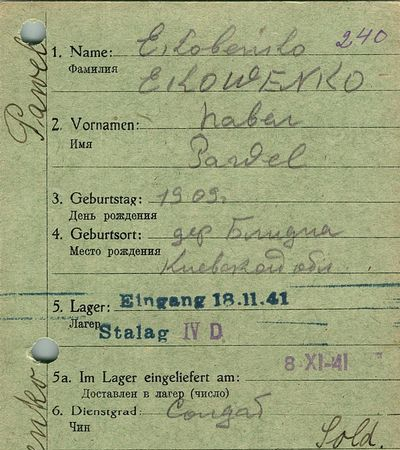 1. Name: 240
Фамилия
EKOWENKO
2. Vornamen:
Имя
Pawel
3. Geburtstag: 1909г.
День рождения
4. Geburtsort: дер
Место рождения
Киевской обл.
5. Lager: Eingang 18.11.41
Лагерь Stalag IV D
8 XI-41
5a. Im Lager eingeliefert am:
Доставлен в лагерь (число)
6. Dienstgrad: Солдат
Чин
Sold.
Pawel
enko